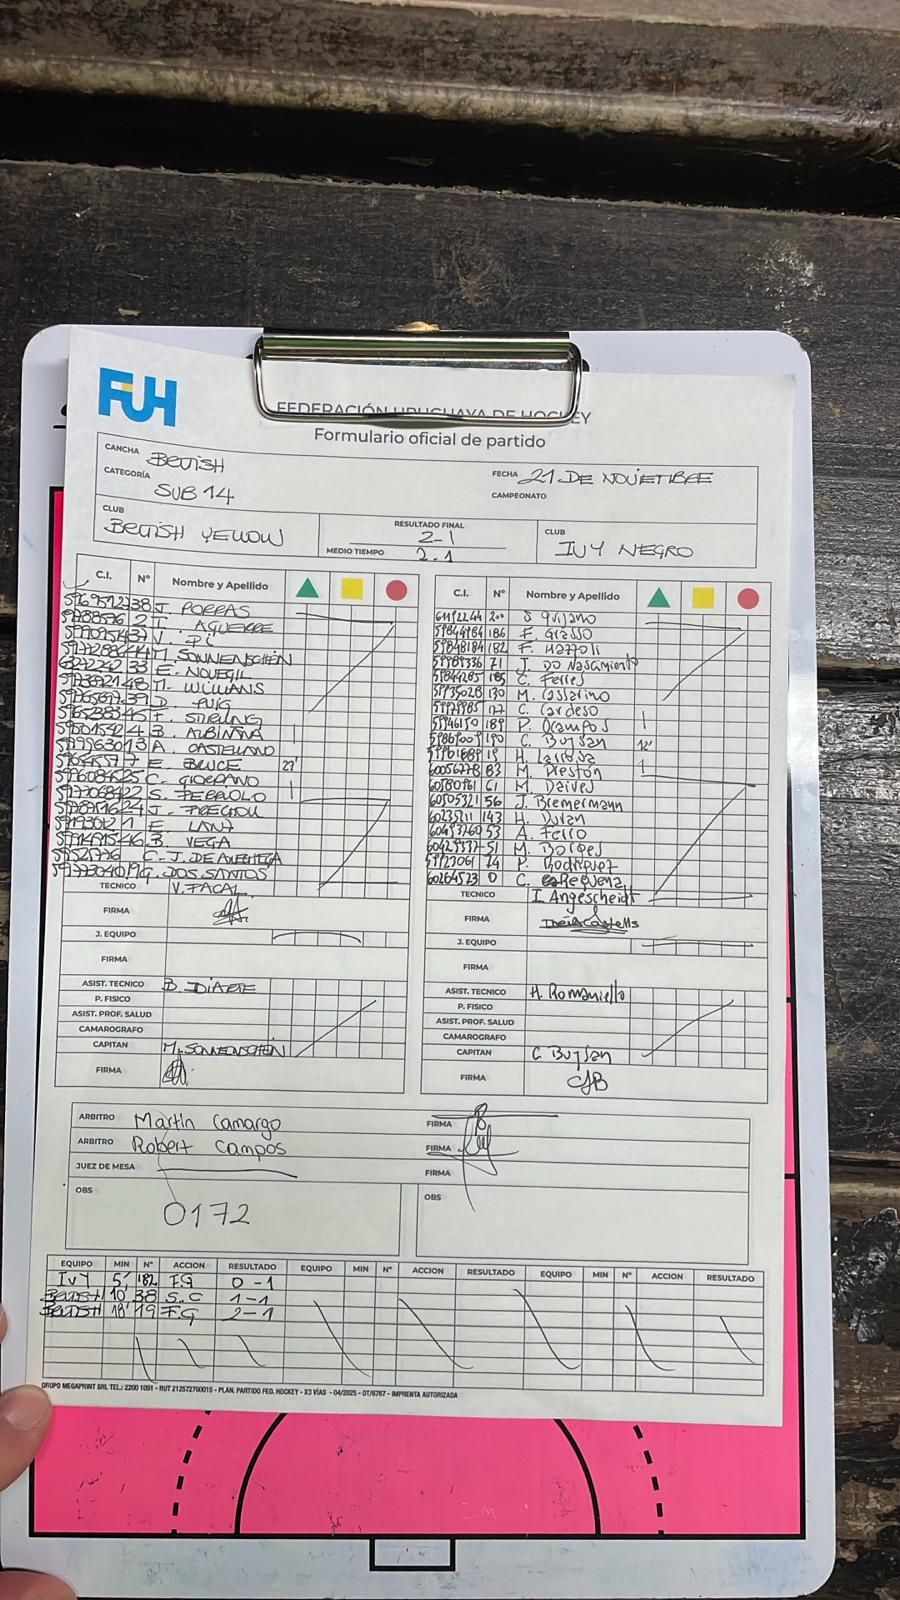 FUH
FEDERACIÓN URUGUAYA DE HOCKEY
Formulario oficial de partido
CANCHA BRITISH
FECHA 21 DE NOVIEMBRE
CATEGORÍA SUB 14
CAMPEONATO
CLUB BRITISH YELLOW
RESULTADO FINAL 2-1
MEDIO TIEMPO 2-1
CLUB IVY NEGRO
C.I. Nº Nombre y Apellido
38 J. PORRAS
2 I. AGUERRE
V. PI
M. SONNENSCHEIN
33 E. NOUEGIL
48 M. WILLIANS
39 D. PUIG
45 F. STIRLING
4 B. ALBINANA
13 A. CASTELLANO
7 E. BRUCE 27'
25 C. GIORDANO
22 S. FERROLO
24 J. FREGOLI
E. LANZ
46 B. VEGA
C. J. DE ARECHEGA
19 G. DOS SANTOS
TECNICO V. FACAL
FIRMA
J. EQUIPO
FIRMA
ASIST. TECNICO B. DIARTE
P. FISICO
ASIST. PROF. SALUD
CAMAROGRAFO
CAPITAN M. SONNENSCHEIN
FIRMA
C.I. Nº Nombre y Apellido
61192244 200 S Quijano
59844984 186 F. Grasso
59848184 182 F. Mazzoli
59989336 71 J. Do Nascimento
185 C. Ferres
59935028 130 M. Casarino
177 C. Cardeso
59946150 189 P. Ocampos
59869009 190 C. Buysan 12'
19 H. Larrosa
60056278 83 M. Preston
60580961 61 M. Daives
60505321 56 J. Bremermann
60235211 143 H. Duran
60453760 53 A. Ferro
60429337 51 M. Borges
59923061 74 P. Rodriguez
60264523 0 C. Requena
TECNICO I. Angescheidt
FIRMA
J. EQUIPO
FIRMA
ASIST. TECNICO H. Romaniello
P. FISICO
ASIST. PROF. SALUD
CAMAROGRAFO
CAPITAN C. Buysan
FIRMA CJB
ARBITRO Martín Camargo FIRMA
ARBITRO Robert Campos FIRMA
JUEZ DE MESA FIRMA
OBS 0172
OBS
EQUIPO MIN Nº ACCION RESULTADO EQUIPO MIN Nº ACCION RESULTADO EQUIPO MIN Nº ACCION RESULTADO
IVY 5' 182 F.G 0-1
BRITISH 10' 38 S.C 1-1
BRITISH 18' 19 F.G 2-1
GRUPO MEGAPRINT SRL TEL.: 2200 1091 - RUT 212572760015 - PLAN. PARTIDO FED. HOCKEY - X3 VÍAS - 04/2025 - OT/6767 - IMPRENTA AUTORIZADA